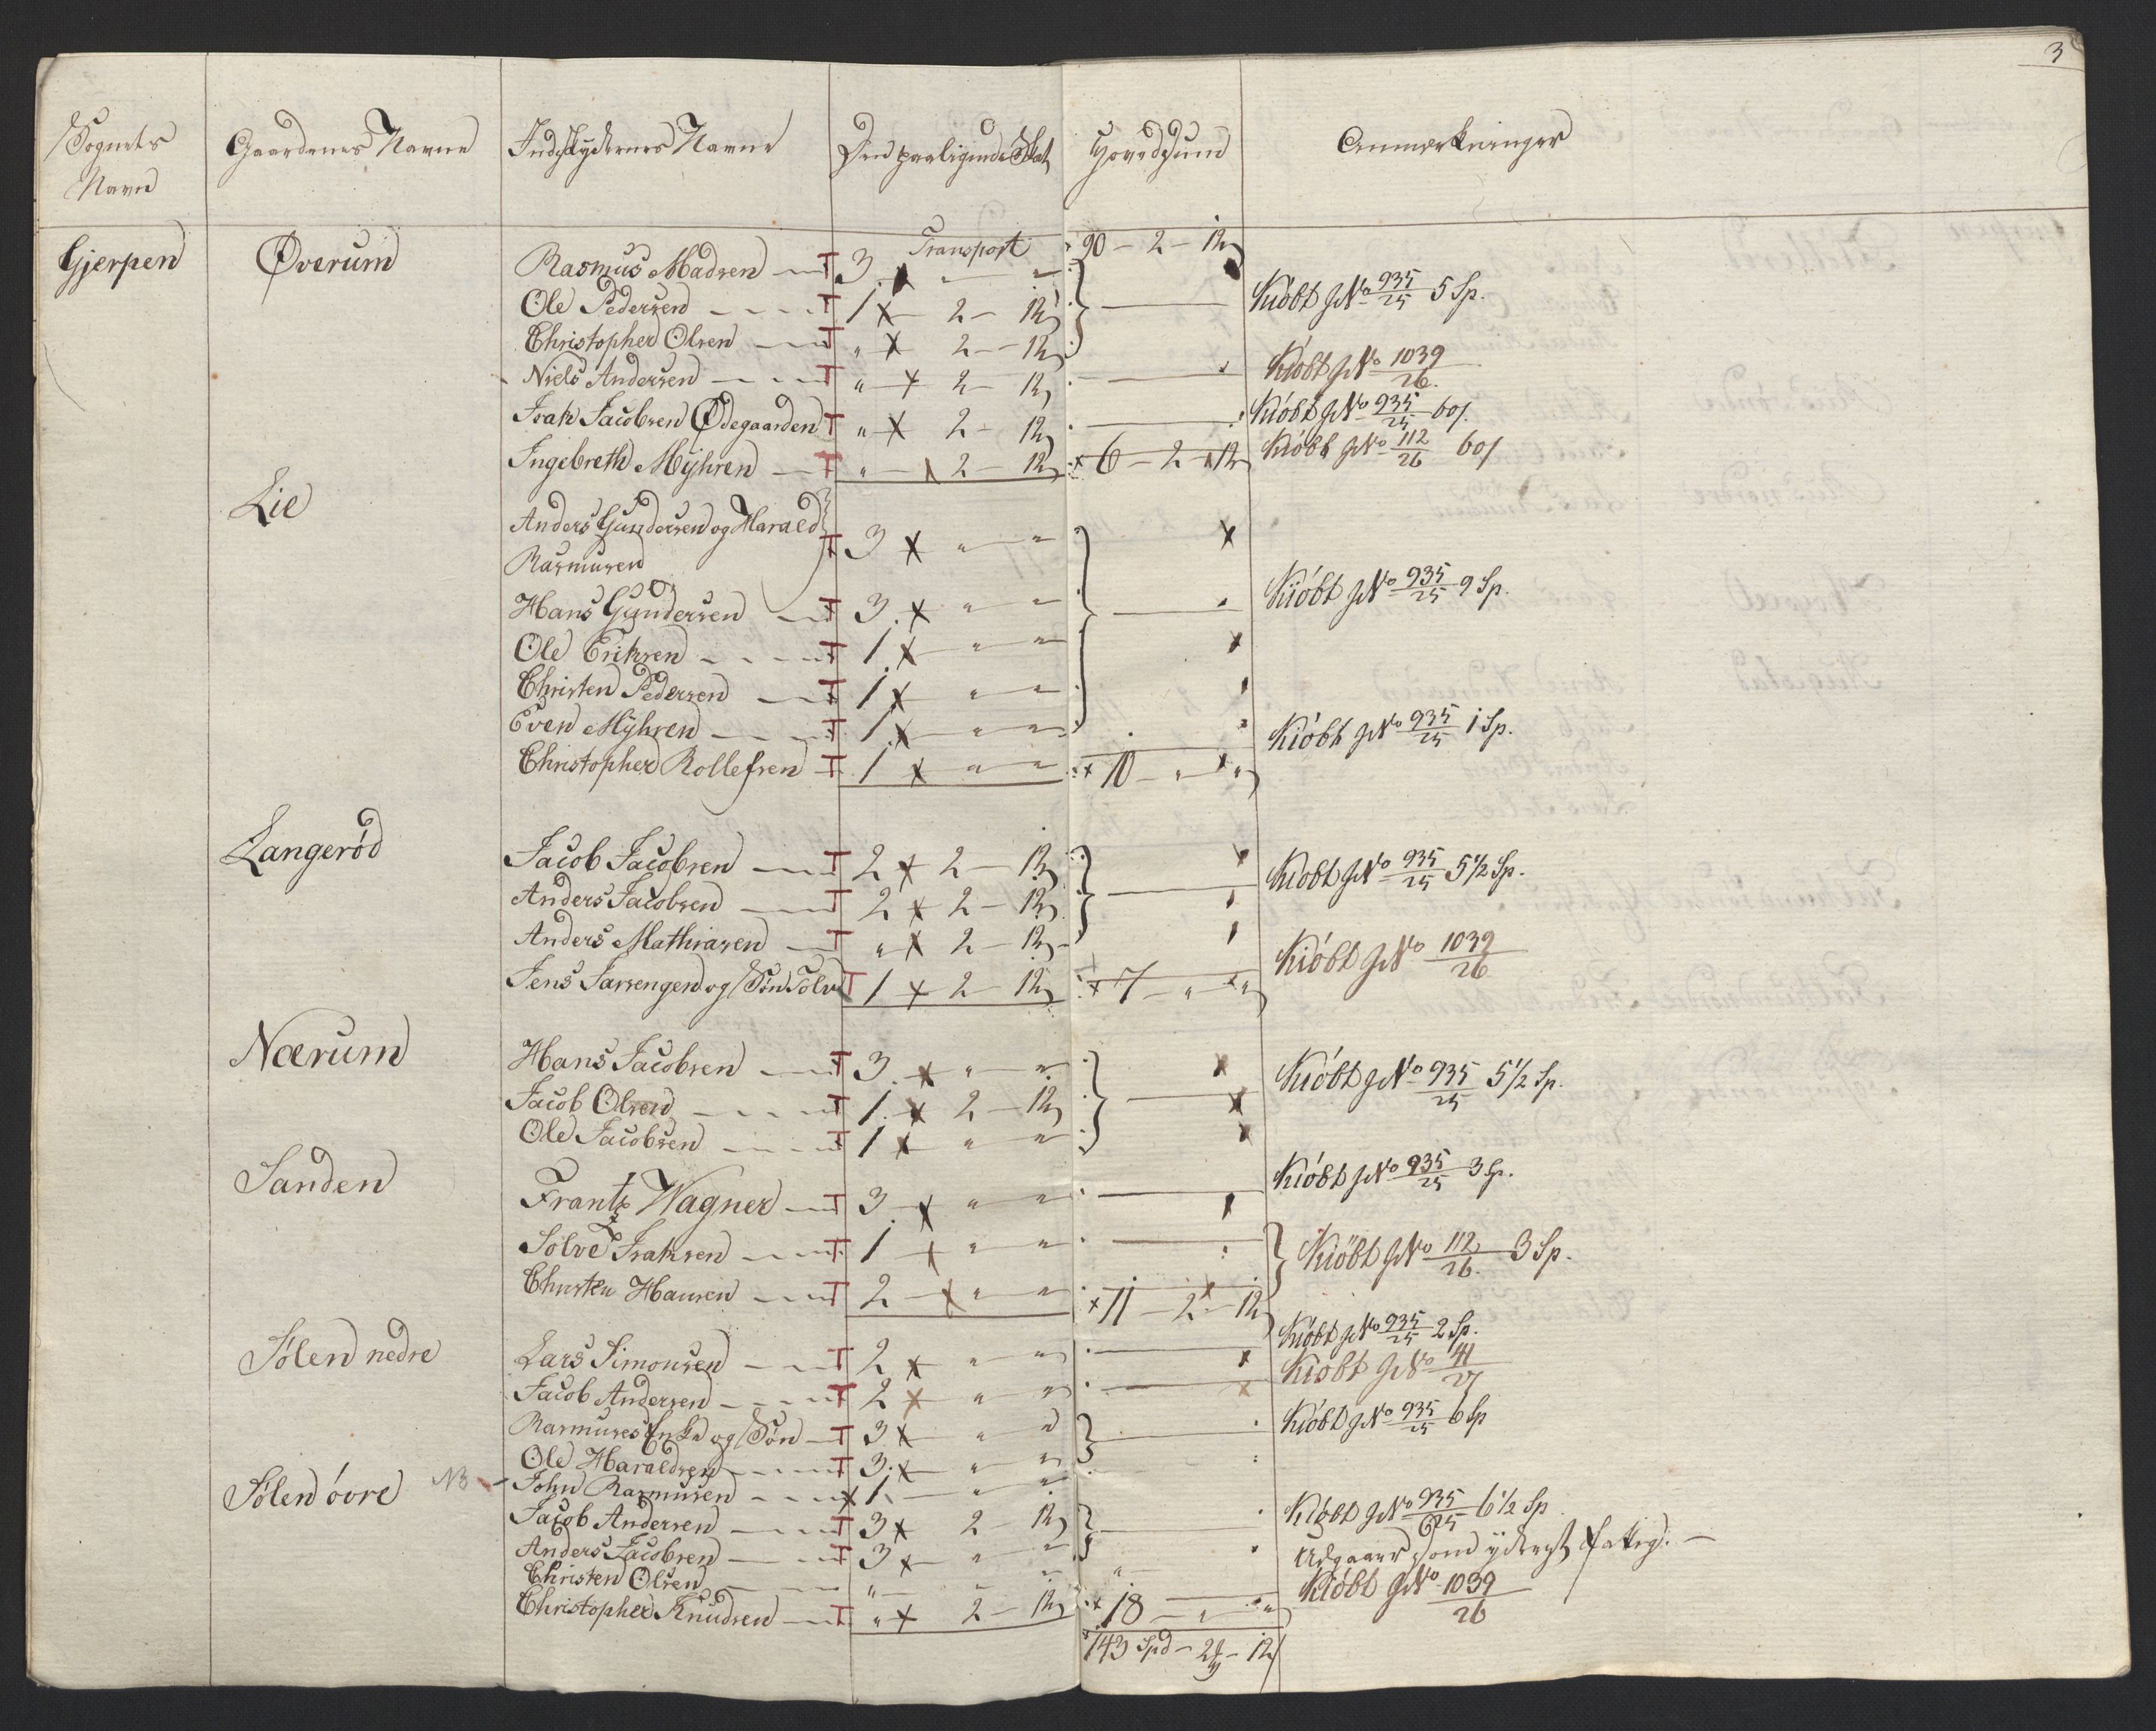 3
Sognets Navn | Gaardenes Navne | Indskydernes Navne | Den paaligende Skat | Hovedsum | Anmerkninger
Transport 90 – 2 – 12
Gjerpen | Øverum | Rasmus Madsen T 3 " "
Ole Pedersen T 1 2 – 12 | Kióbt J No 935/25 5 Sp.
Christopher Olsen T " 2 – 12
Niels Andersen T " 2 – 12 | Kióbt J No 1039/26.
Isak Jacobsen Ødegaarden T " 2 – 12 | Kióbt J No 935/25 60/.
Ingebreth Mÿhren T " 2 – 12 | 6 – 2 – 12 | Kióbt J No 112/26 60/
Lie | Anders Gundersen og Harald
Rasmusen T 3 " "
Hans Gundersen T 3. " " | Kióbt J No 935/25 9 Sp.
Ole Eriksen T 1. " "
Christen Pedersen T 1. " "
Even Mÿhren T 1. " "
Christopher Rollefsen T 1 " " | 10 – " – " | Kióbt J No 935/25 1 Sp.
Langerød | Jacob Jacobsen T 2 2 – 12 | Kióbt J No 935/25 5 1/2 Sp.
Anders Jacobsen T 2 2 – 12
Anders Mathiasen T " 2 – 12
Jens Sassengen og Søn Solve T 1 2 – 12 | 7 – " – " | Kióbt J No 1039/26
Nærum | Hans Jacobsen T 3. " " | Kióbt J No 935/25 5 1/2 Sp.
Jacob Olsen T 1. 2 – 12
Ole Jacobsen T 1 " "
Sanden | Frantz Wagner T 3. " " | Kióbt J No 935/25 3 Sp.
Solve Isaksen T 1 " " | Kióbt J No 112/26. 3 Sp.
Christen Hansen T 2 " " | 11 – 2 – 12
Sølen nedre | Lars Simonsen T 2 " " | Kióbt J No 935/25 2 Sp.
Jacob Andersen T 2 " " | Kióbt J No 41/27
Rasmuses Enke og Søn T 3 " " | Kióbt J No 935/25 6 Sp
Ole Haraldsen T 3. " "
Sølen óvre | NB John Rasmusen 1. " "
Jacob Andersen T 3 2 – 12 | Kióbt J No 935/25 6 1/2 Sp
Anders Jacobsen T 3 " "
Christen Olsen " – – | " | Udgaaer som yderst fattig. –
Christopher Knudsen T " 2 – 12 | 18 – " – " | Kióbt J No 1039/26
143 Spd – 2 – 12/